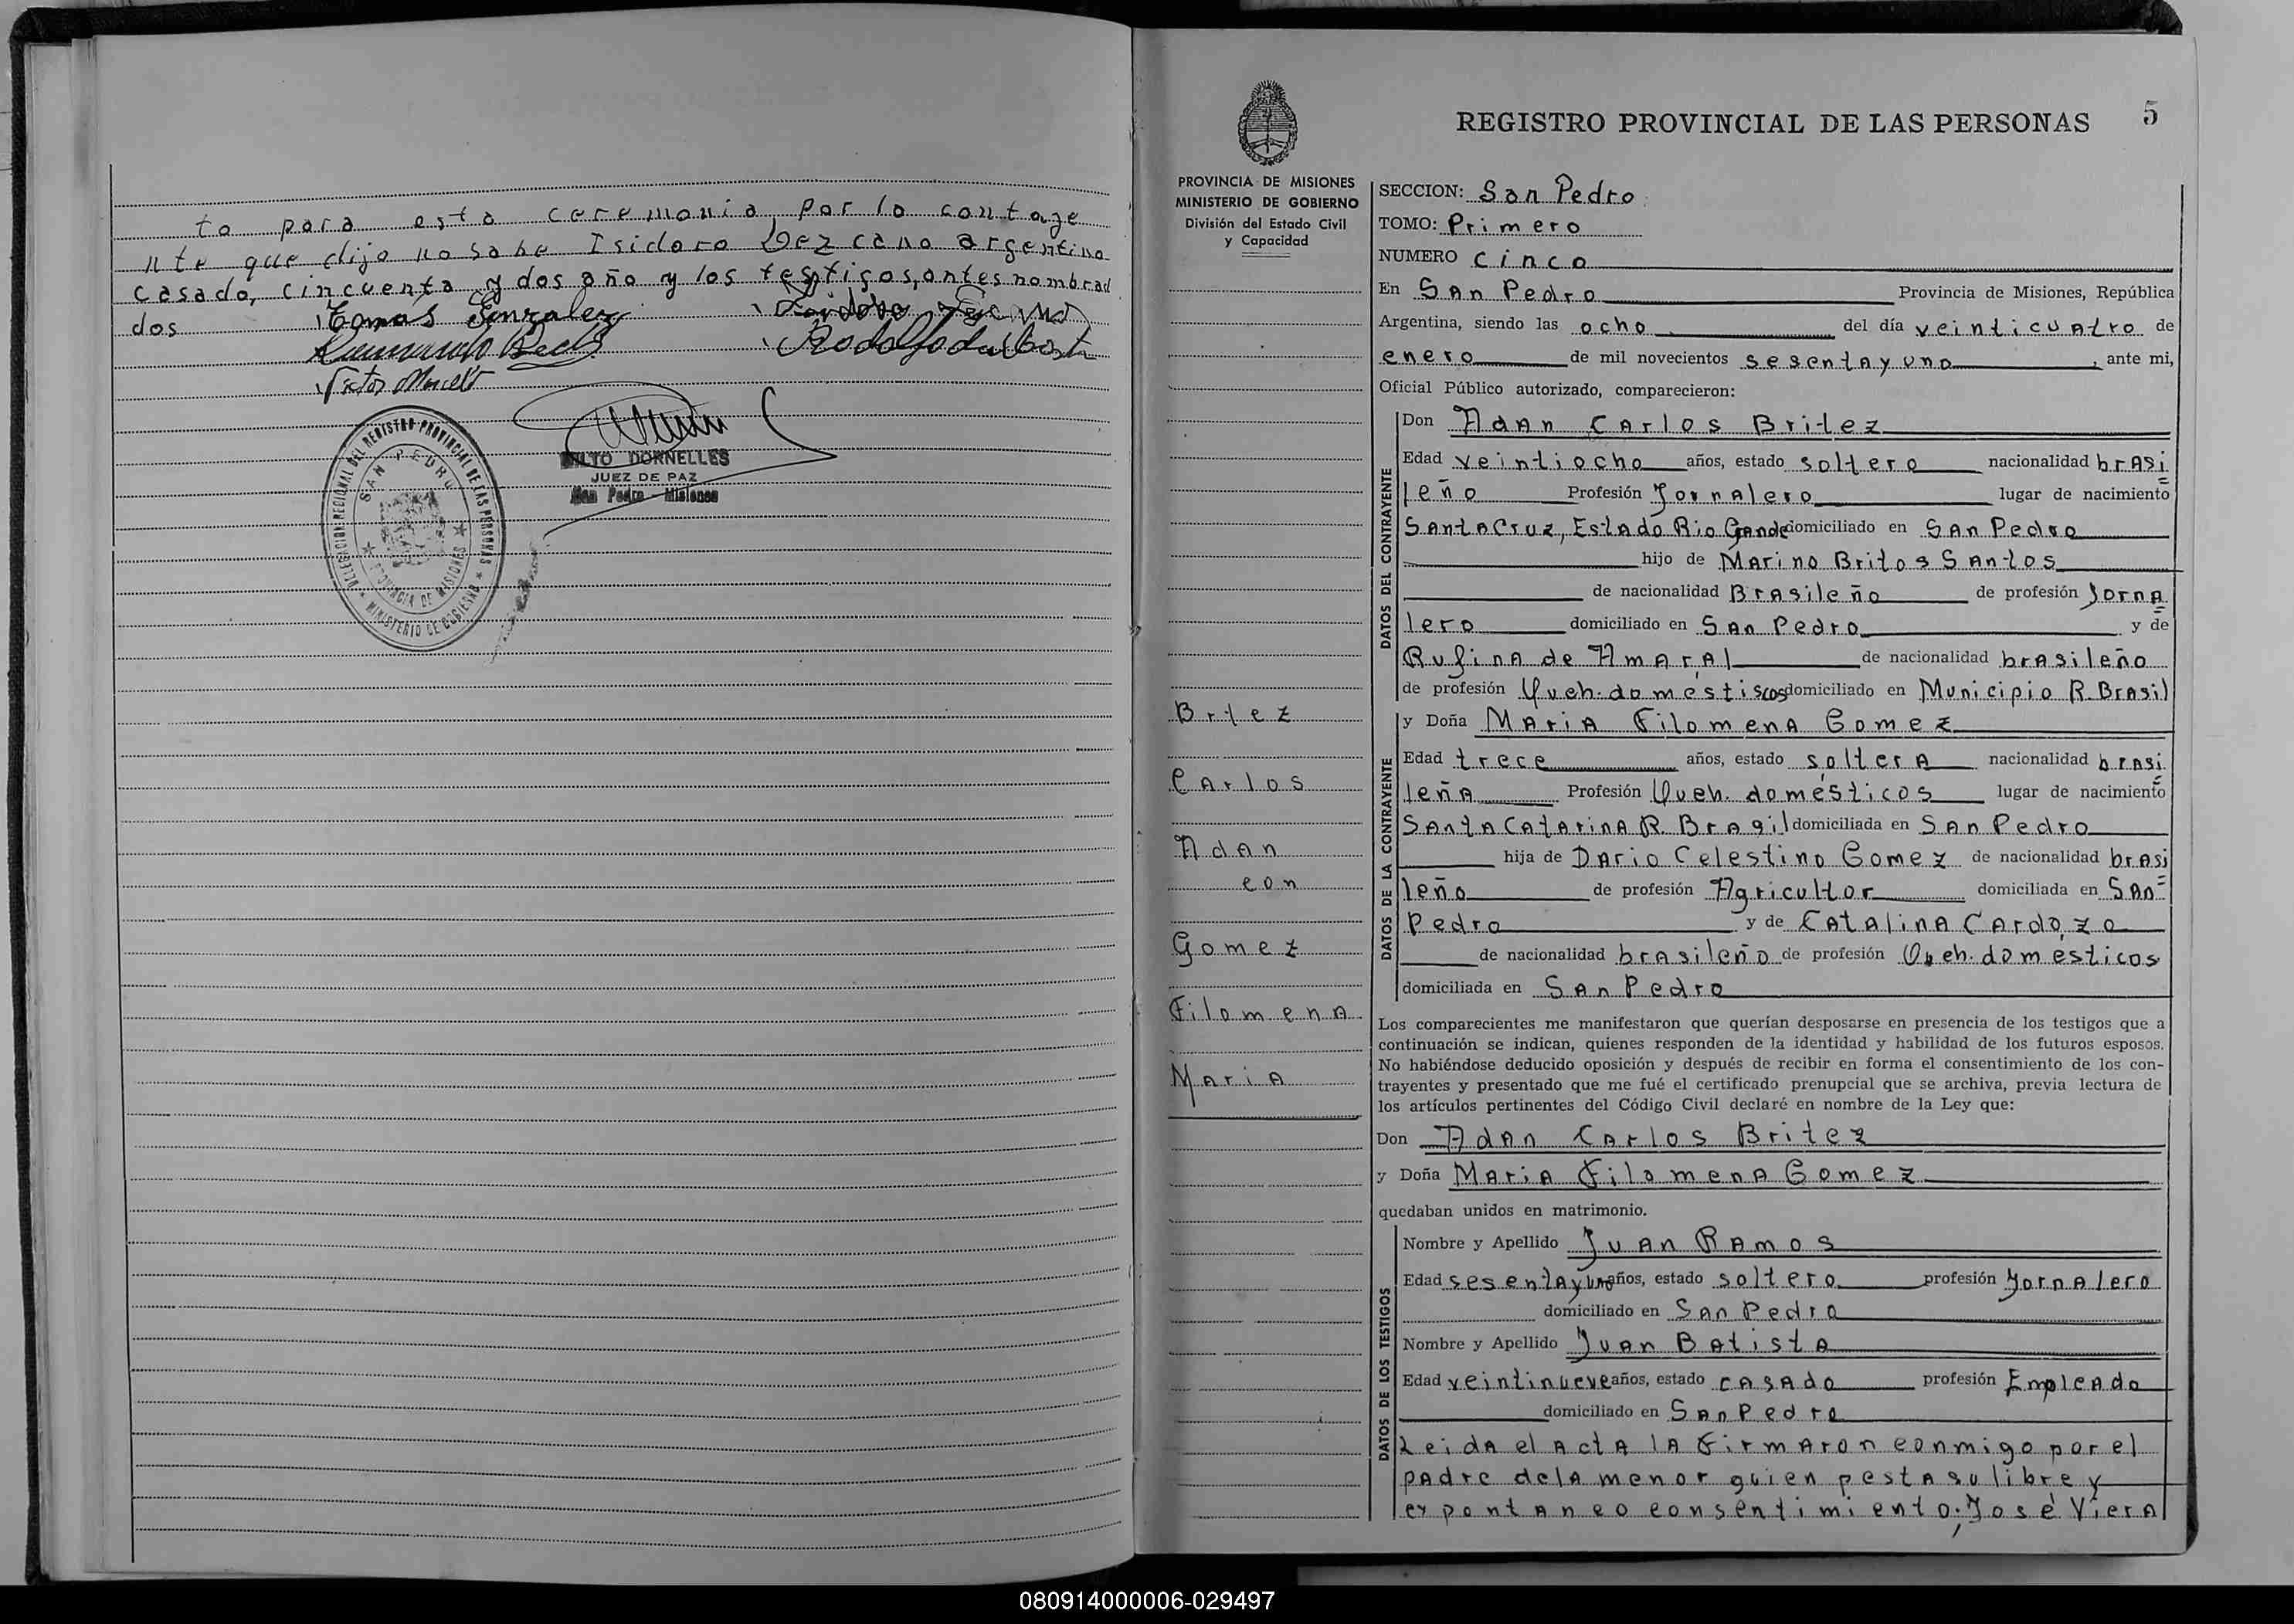 to para esta ceremonia, por lo contraye
nte que dijo no sabe Isidoro Lezcano argentino
casado, cincuenta y dos año y los testigos, antes nombrad
dos
Tomas Gonzalez
Raimundo Beck
Rodolfo
Victor
DELEGACION REGIONAL DEL REGISTRO PROVINCIAL DE LAS PERSONAS
SAN PEDRO
PROVINCIA DE MISIONES
MINISTERIO DE GOBIERNO
MILTO DORNELLES
JUEZ DE PAZ
San Pedro - Misiones
REGISTRO PROVINCIAL DE LAS PERSONAS
5
PROVINCIA DE MISIONES
MINISTERIO DE GOBIERNO
División del Estado Civil
y Capacidad
Britez
Carlos
Adan
con
Gomez
Filomena
Maria
SECCION: San Pedro
TOMO: Primero
NUMERO cinco
En San Pedro Provincia de Misiones, República
Argentina, siendo las ocho del día veinticuatro de
enero de mil novecientos sesenta y uno, ante mi,
Oficial Público autorizado, comparecieron:
DATOS DEL CONTRAYENTE
Don Adan Carlos Britez
Edad veintiocho años, estado soltero nacionalidad brasi
leño Profesión Jornalero lugar de nacimiento
Santa Cruz, Estado Rio Grande domiciliado en San Pedro
hijo de Marino Britos Santos
de nacionalidad Brasileño de profesión Jorna
lero domiciliado en San Pedro y de
Rufina de Amaral de nacionalidad brasileño
de profesión Queh. doméstiscos domiciliado en Municipio R. Brasil
DATOS DE LA CONTRAYENTE
y Doña Maria Filomena Gomez
Edad trece años, estado soltera nacionalidad brasi
leña Profesión Queh. domésticos lugar de nacimiento
Santa Catarina R. Brasil domiciliada en San Pedro
hija de Dario Celestino Gomez de nacionalidad brasi
leño de profesión Agricultor domiciliada en San
Pedro y de Catalina Cardozo
de nacionalidad brasileño de profesión Queh. domésticos
domiciliada en San Pedro
Los comparecientes me manifestaron que querían desposarse en presencia de los testigos que a
continuación se indican, quienes responden de la identidad y habilidad de los futuros esposos.
No habiéndose deducido oposición y después de recibir en forma el consentimiento de los con-
trayentes y presentado que me fué el certificado prenupcial que se archiva, previa lectura de
los artículos pertinentes del Código Civil declaré en nombre de la Ley que:
Don Adan Carlos Britez
y Doña Maria Filomena Gomez
quedaban unidos en matrimonio.
DATOS DE LOS TESTIGOS
Nombre y Apellido Juan Ramos
Edad sesenta y un años, estado soltero profesión Jornalero
domiciliado en San Pedro
Nombre y Apellido Juan Batista
Edad veintinueve años, estado casado profesión Empleado
domiciliado en San Pedro
Leida el acta la firmaron conmigo por el
padre dela menor quien pesta su libre y
expontaneo consentimiento; José Viera
080914000006-029497